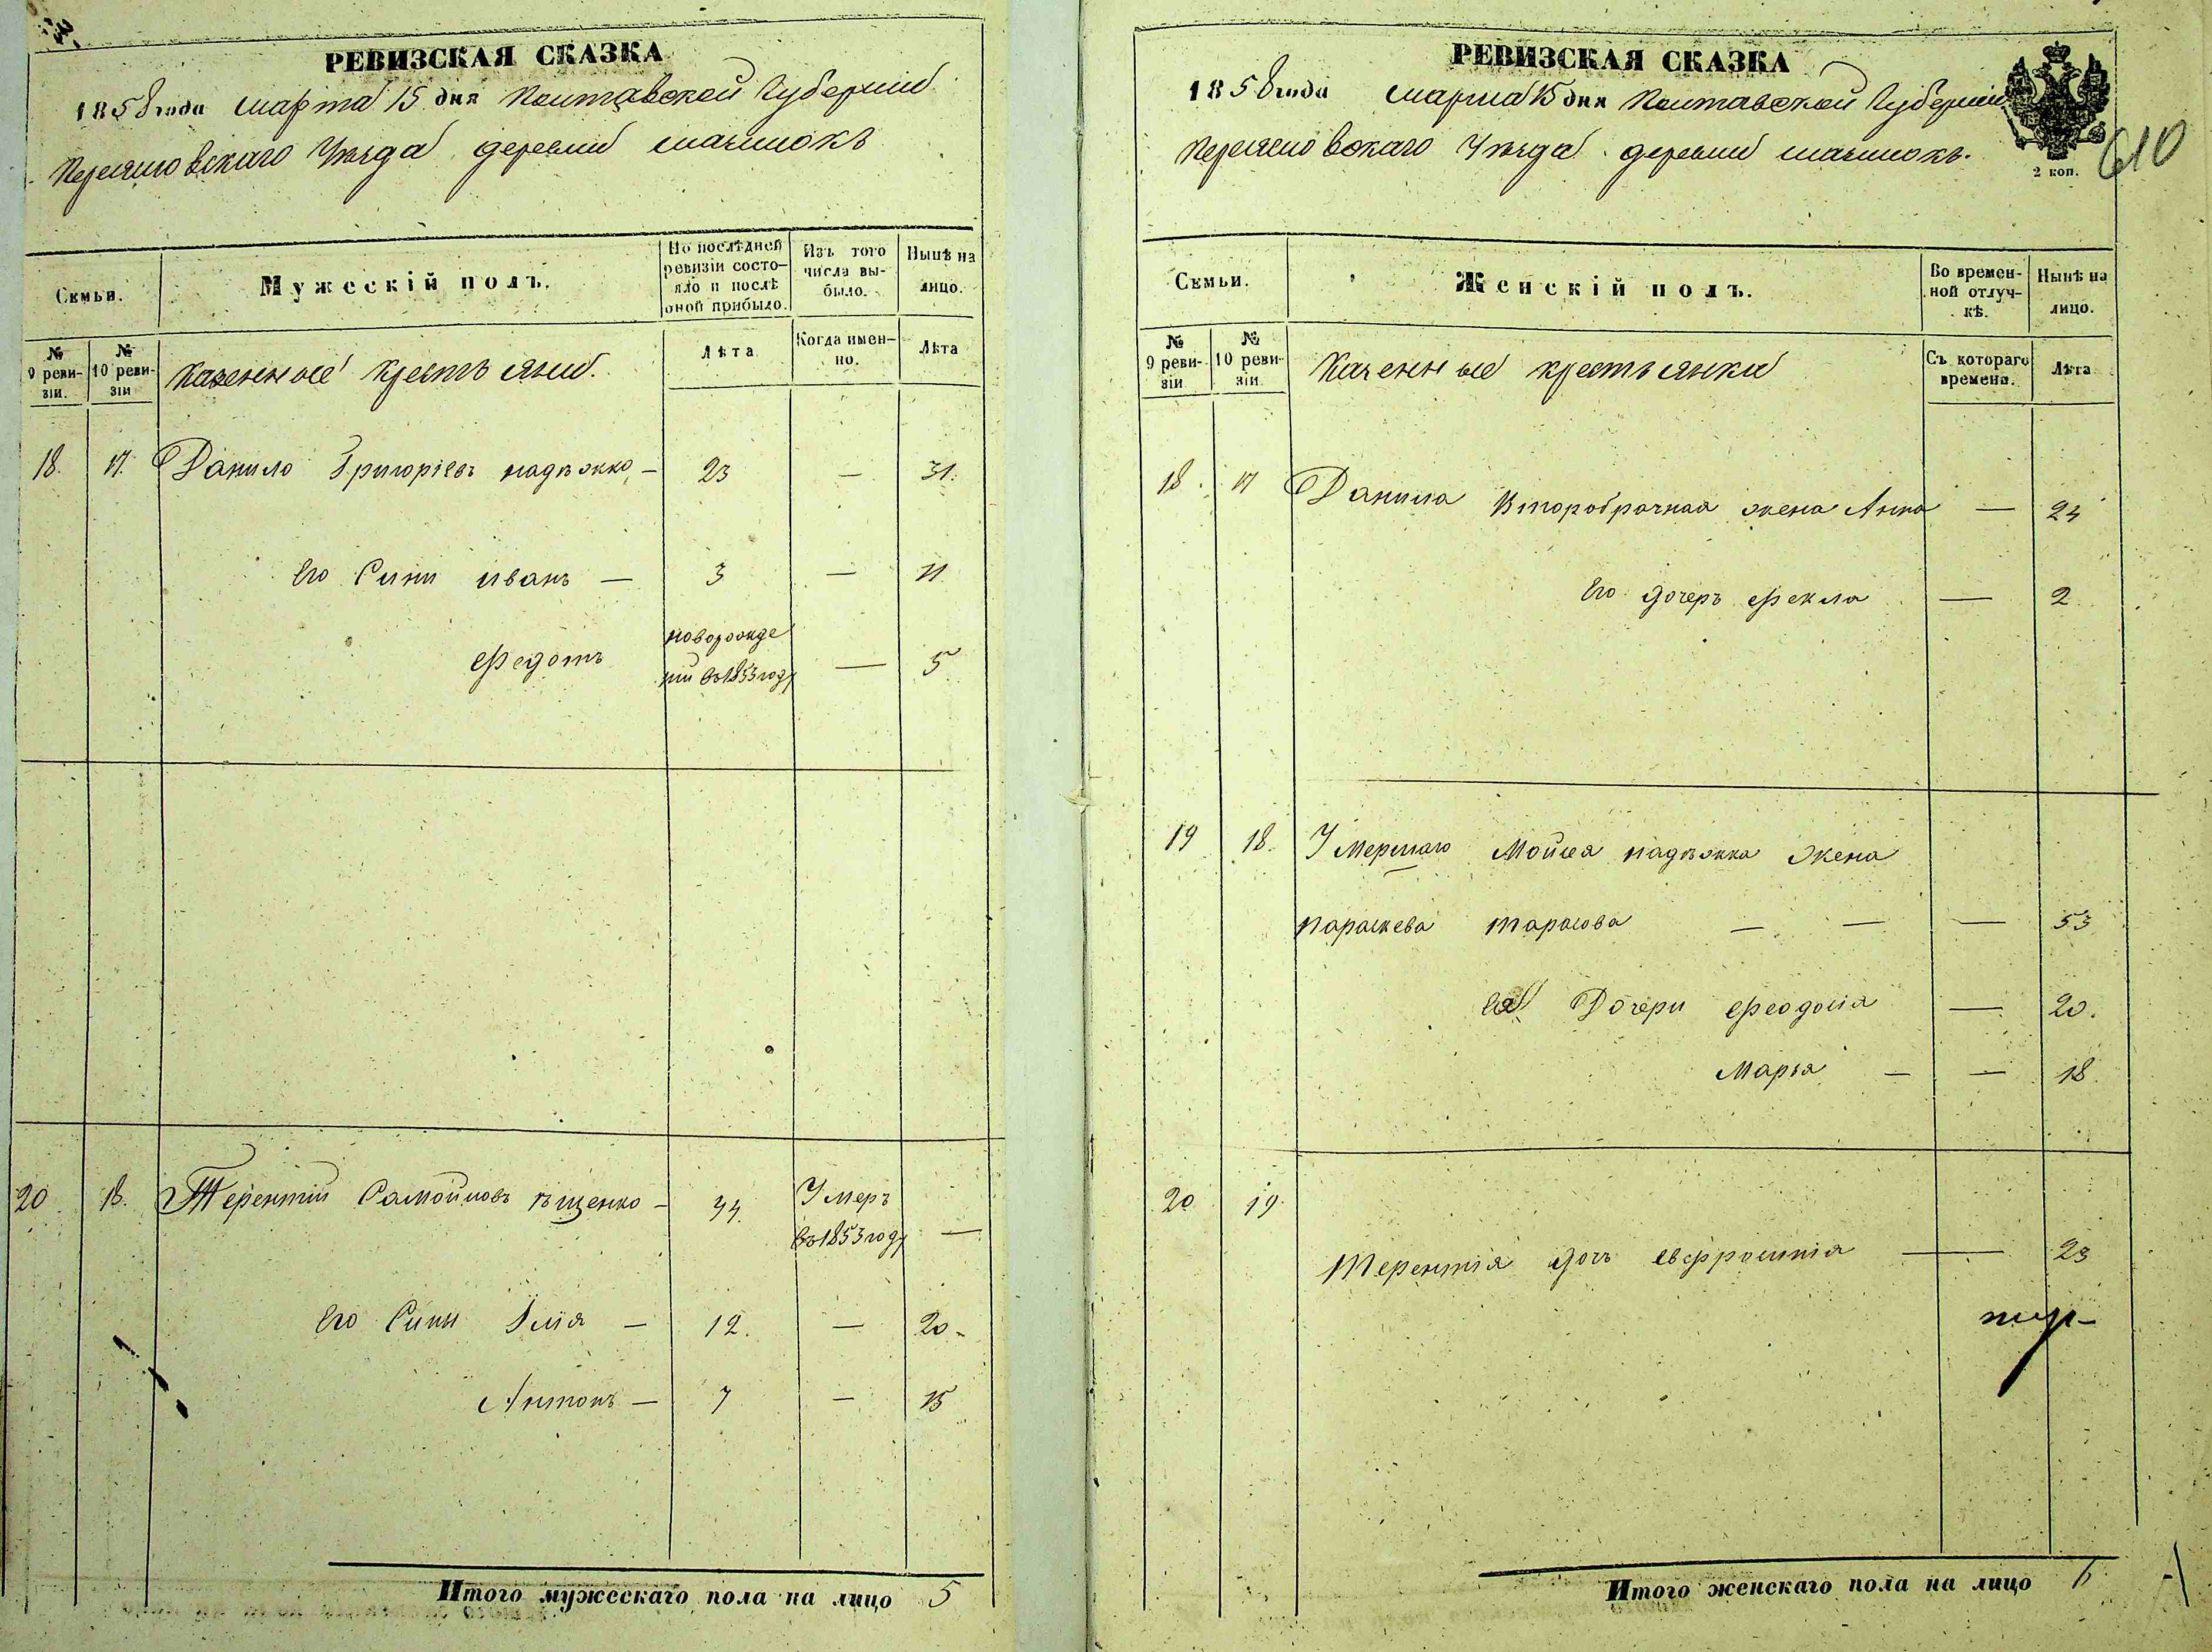 РЕВИЗСКАЯ СКАЗКА
1858 года марта 15 дня Полтавской Губернии
Переяславского Уезда деревни
Семьи.
Мужескій полъ.
По послѣдней ревизіи состояло и послѣ оной прибыло.
Изъ того числа выбыло.
Нынѣ на лицо.
№ 9 ревизіи.
№ 10 ревизіи
Казенные крестьяни.
Лѣта
Когда именно.
Лѣта
18. 17. Данило Григоріевъ надѣжко — 23 — 31.
Его Сини иванъ — 3 — 11
Федотъ новорожде ни въ 1853 году — 5
20 18. Терентий Самойловъ ищенко — 44. Умеръ въ 1853 году —
Его Сини Илія — 12. — 20 -
Антонъ — 7 — 15
Итого мужескаго пола на лицо 5
РЕВИЗСКАЯ СКАЗКА
1858 года марта 15 дня Полтавской Губернии
Переяславского Уезда деревни
610
2 коп.
Семьи.
Женскій полъ.
Во временной отлучкѣ.
Нынѣ на лицо.
№ 9 ревизіи
№ 10 ревизіи
Казенные крестьянки
Съ котораго времени.
Лѣта
18. 17 Данила Второбрачная жена Анна — 24
Его дочеръ Фекла — 2
19 18. Умершаго Мойсея надѣжка Жена
параскева тарасова — — — 53
Дочери Феодосія — 20.
Марья — — 18.
20 19.
Терентія дочь евфросинія — 23
Итого женскаго пола на лицо 6